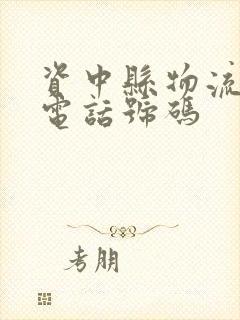 資中縣物流
電話號碼
考朋